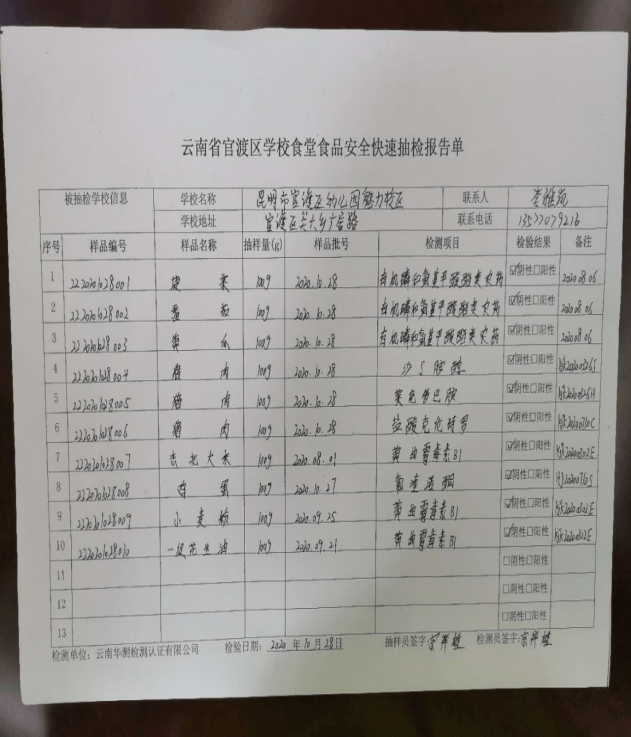 云南省官渡区学校食堂食品安全快速抽检报告单
被抽检学校信息 学校名称 昆明市官渡区幼儿园魅力校区 联系人 李雅苑
学校地址 官渡区关上乡广居路 联系电话 13577079216
序号 样品编号 样品名称 抽样量(g) 样品批号 检测项目 检验结果 备注
1 2220201028001 100g 2020.10.28 有机磷和氨基甲酸酯类农药 ☑阴性□阳性 2020.08.06
2 2220201028002 番茄 100g 2020.10.28 有机磷和氨基甲酸酯类农药 ☑阴性□阳性 2020.08.06
3 2220201028003 黄瓜 100g 2020.10.28 有机磷和氨基甲酸酯类农药 ☑阴性□阳性 2020.08.06
4 2220201028004 猪肉 100g 2020.10.28 沙丁胺醇 ☑阴性□阳性
5 2220201028005 猪肉 100g 2020.10.28 莱克多巴胺 ☑阴性□阳性
6 2220201028006 猪肉 100g 2020.10.28 盐酸克伦特罗 ☑阴性□阳性
7 2220201028007 东北大米 100g 2020.08.01 黄曲霉毒素B1 ☑阴性□阳性
8 2220201028008 鸡蛋 100g 2020.10.27 氟喹诺酮 ☑阴性□阳性
9 2220201028009 小麦粉 100g 2020.09.25 黄曲霉毒素B1 ☑阴性□阳性
10 2220201028010 一级花生油 100g 2020.09.21 黄曲霉毒素B1 ☑阴性□阳性
11 □阴性□阳性
12 □阴性□阳性
13 □阴性□阳性
检测单位：云南华测检测认证有限公司 检验日期：2020年10月28日 抽样员签字： 检测员签字：